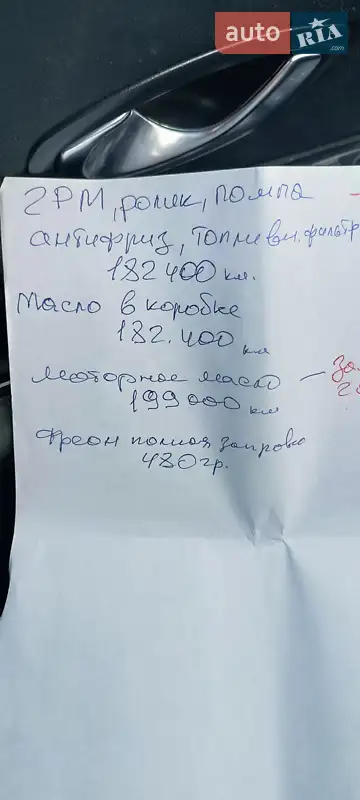 auto RIA .com
ГРМ, ролик, помпа -
антифриз, топливн. фильтр
182 400 км.
Масло в коробке
182.400 км
моторное масло —
199 000 км
Фреон полная запровка
480 гр.